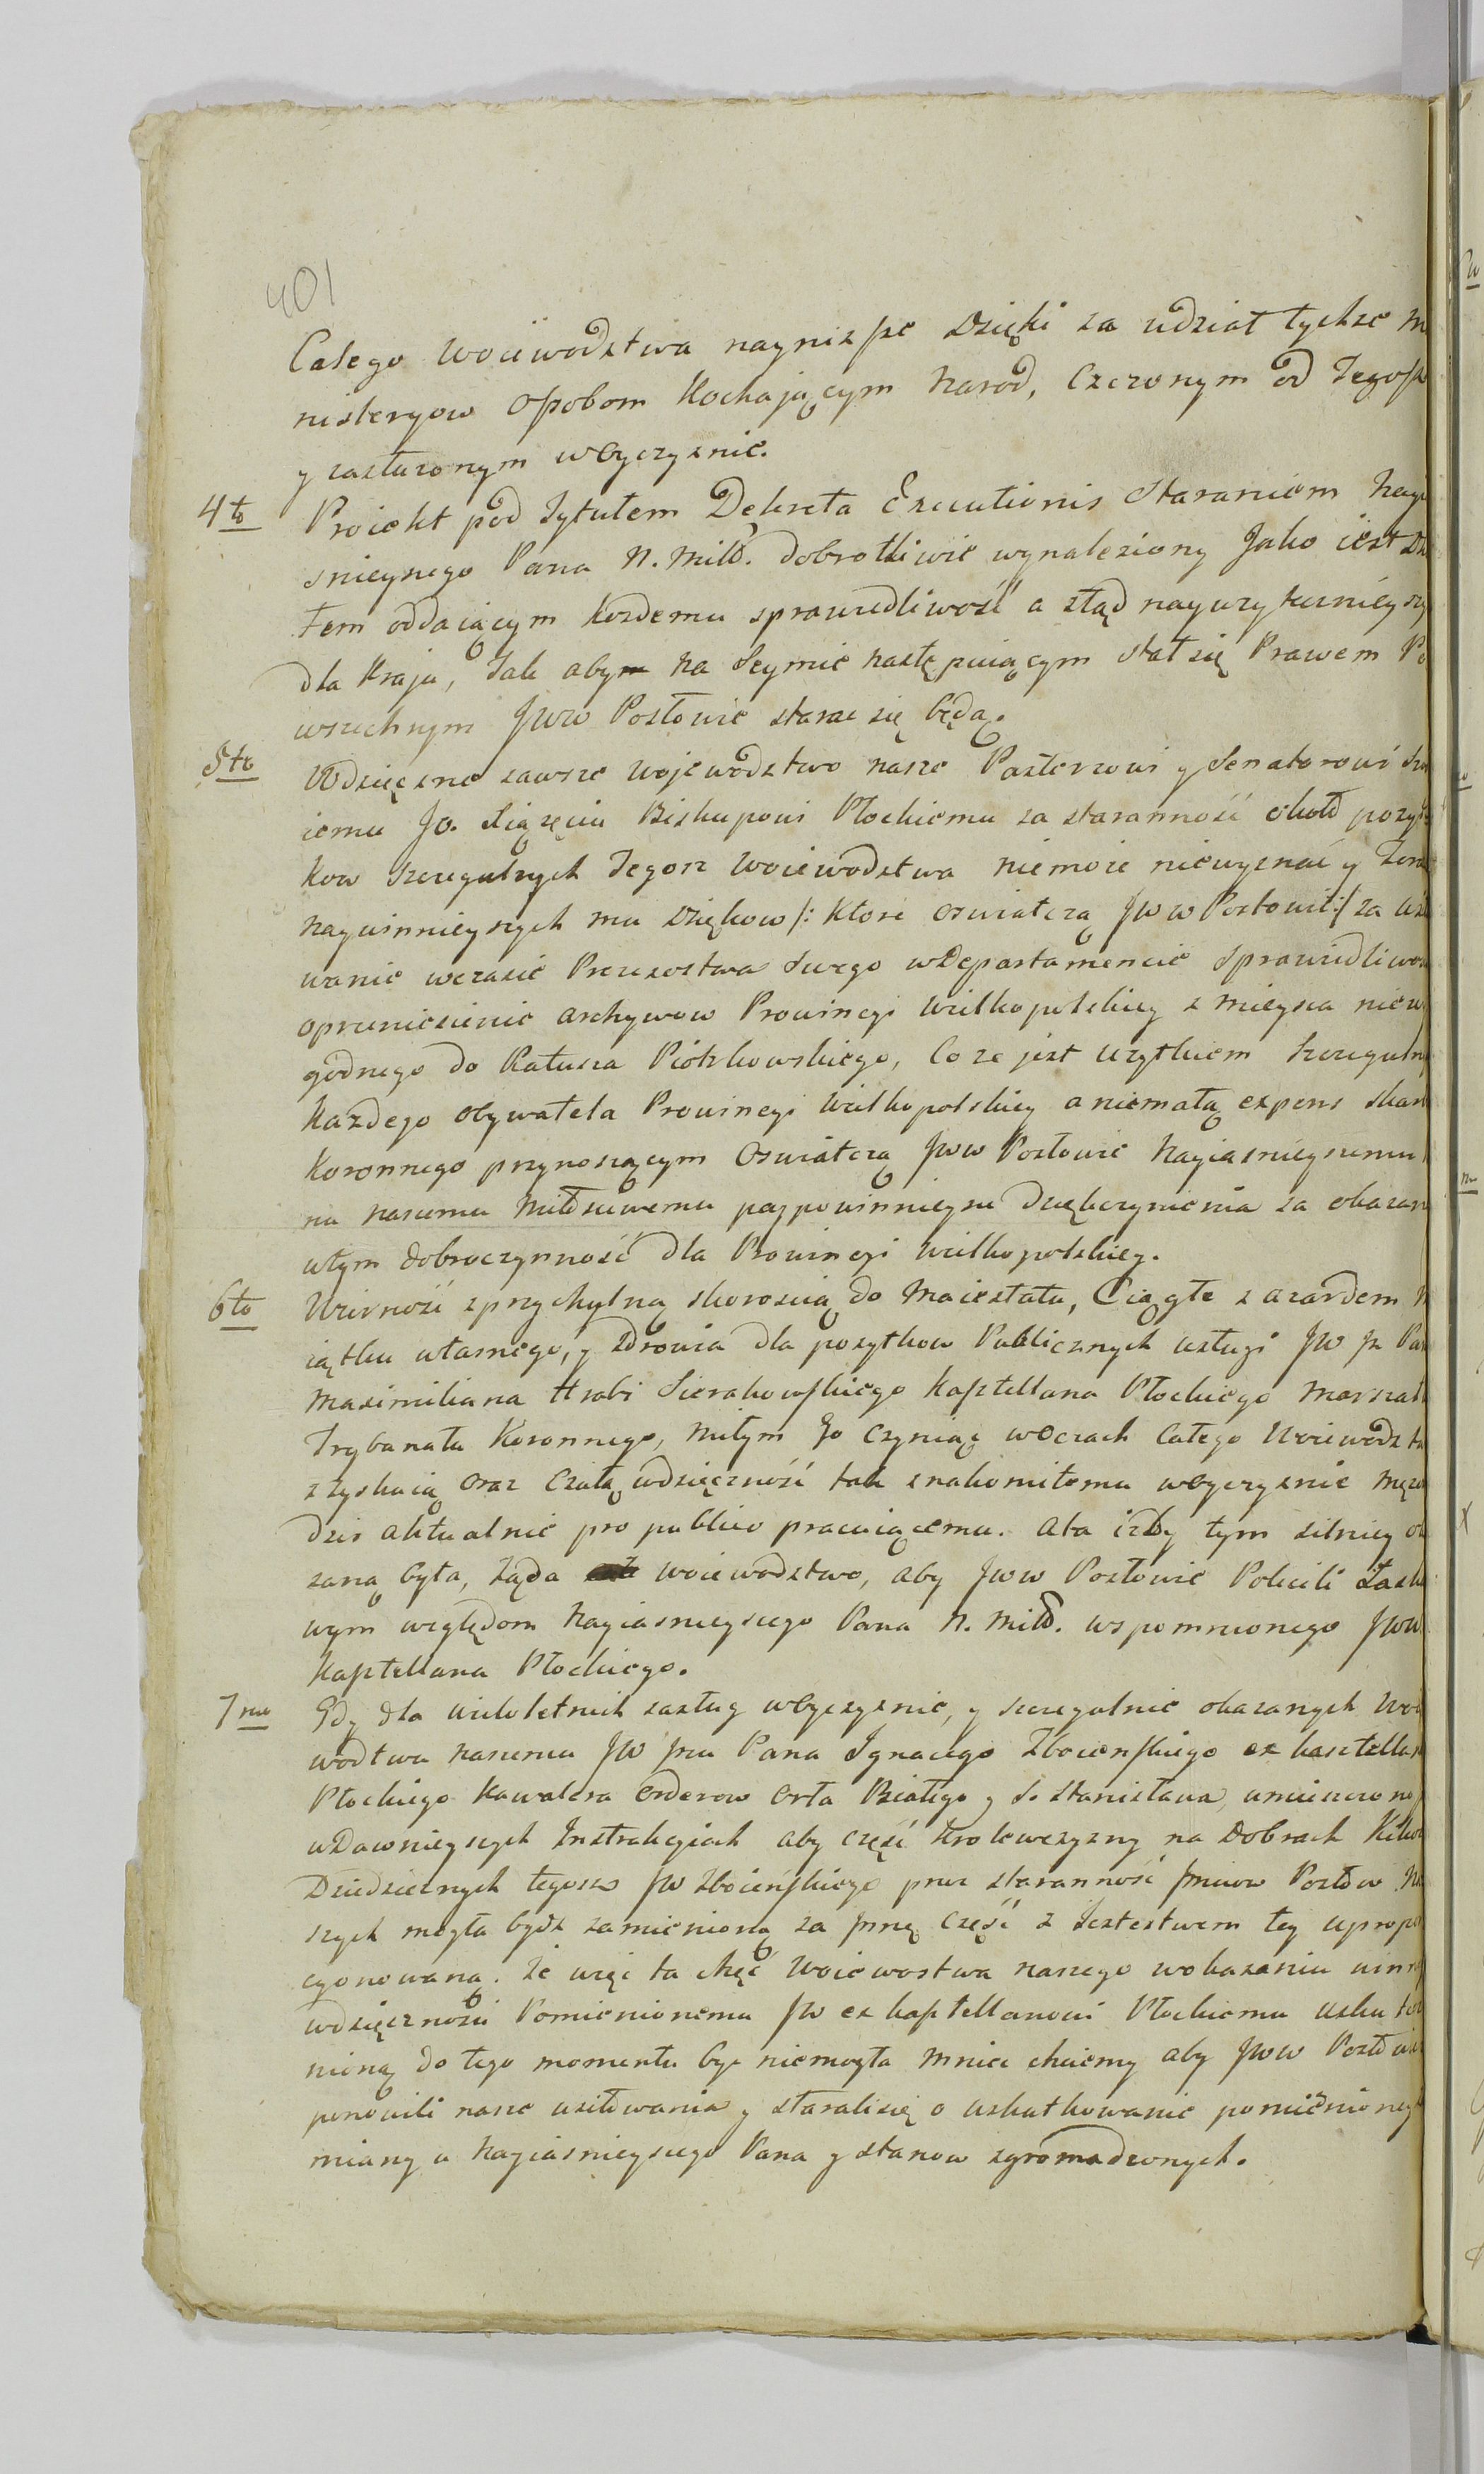 401
Całego Woiiwodztwa naynizsze Dzięki za udział tychze M
nisteryow Osobom Kochaiącym Narod, Czczonym od Tegosz
y zasłuzonym wOyczyznie.
4to Proiekt pod Tytułem Dekreta Executionis Staraniem Nayi
snieyszego Pana N. Miło. dobrotliwie wynaleziony Jako iest
łem oddaiącym kozdemu sprawiedliwość a ztąd nayuzytecznieyszy
dla Kraju, Tak aby na Seymie następuiącym stał się Prawem Po
wszechnym JWW Posłowie starac się będą.
5to Wdzięczne zawsze Wojewodztwo nasze Pasterzowi y Senatorowi Swo
iemu JO. Xiązęciu Biskupowi Płockiemu za staranność około pozyt
kow szczegulnych Tegosz Woiewodztwa niemoze niewyznać y
naywinnieyszych mu Dziękow /: ktore oswiatczą JWW Posłowie :/ za
wanie wczasie Prezesostwa Swego wDepartamencie Sprawiedliwosci
oprzeniesienie Archywow Prowincyi Wielkopolskiey z mieysca niewy
godnego do Ratusza Piotrkowskiego, Co ze jest uzytkiem szczegulny
Kazdego Obywatela Prowincyi Wielkopolskiey a niemałą expens Skar
Koronnego przynoszącym Oswiatczą JWW Posłowie Nayiasnieyszemu
nu naszemu Miłosciwemu naypowinnieysze Dziękczynienia za okazan
wtym dobroczynność dla Prowincyi Wielkopolskiey.
6to Wierność zprzychylną skorością do Maiestatu, Ciągłe z azardem M
iątku własnego, y zdrowia dla pozytkow Publicznych usługi JW JP Pan
Maximiliana Hrabi Sierakowskiego Kasztellana Płockiego Marszałk
Trybunału Koronnego, Miłym Go Czyniąc wOczach Całego Woiewodztw
zyskuią oraz Czułą wdzięczność tak znakomitemu wOyczyznie Męzo
dzis aktualnie pro publico pracuiącemu. Ata izby tym silniey o
zaną była, Ząda Woiewodztwo, aby JWW Posłowie Polecili Łaska
wym względom Nayiasnieyszego Pana N. Miło. wspomnionego JWW
Kasztellana Płockiego.
7mo Gdy dla wieloletnich zasług wOyczyznie, y szczegulnie okazanych Woie
wodtwu naszemu JW JPu Pana Ignacego Zboienskiego ex Kasztellan
Płockiego Kawalera Orderow Orła Białego y S. Stanisława, umieszczono
wDawnieyszych Instrukcyiach aby część Krolewszczyzny na Dobrach Kikoł
Dziedzicznych tegosz JW Zboieńskiego przez staranność Posłow Na
szych mogła bydz zamienioną za Jnną część z Jestestwem tey upropor
cyonowaną. Ze więc ta chęć Woiewostwa naszego wokazaniu winney
wdzięczności Pomienionemu JW ex Kasztellanowi Płockiemu usku
nioną do tego momentu byc niemogła Mniec chcemy aby JWW Posłowie
ponowili nasze usiłowania y staralisię o uskutkowanie pomienioney
miany u Nayiasnieyszego Pana y Stanow zgromadzonych.